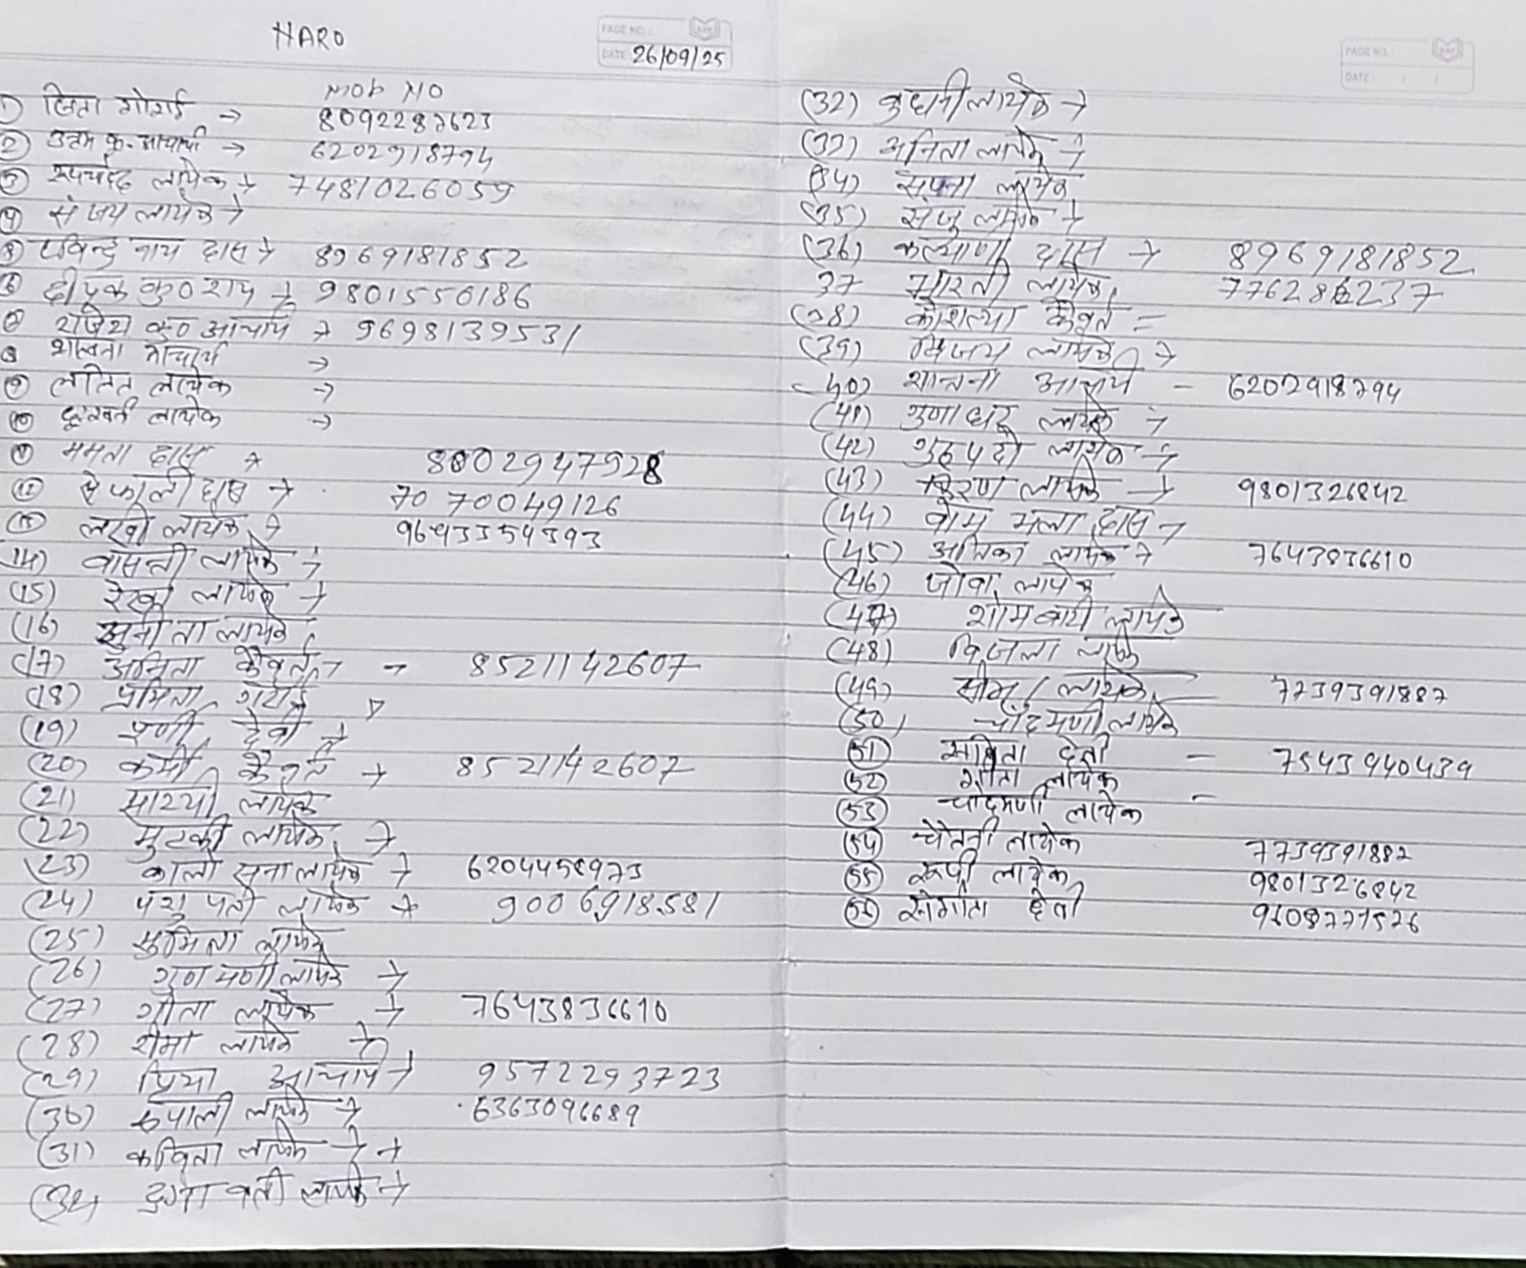 HARO
PAGE NO.:
DATE: 26/09/25
MOB NO
① गोराई → 8092287623
② उत्तम कु. आचार्या → 6202918794
③ रूपचाँद लायेक → 7481026059
④ संजय लायेक →
⑤ रविन्द्र नाथ दास → 8969181852
⑥ दीपक कु० राय → 9801556186
राजेश कु० आचार्य → 9698139531
⑧ आचार्य →
⑨ ललित लायेक →
⑩ लायेक →
⑪ ममता दास → 8002947928
⑫ सेफाली दास → 7070049126
लखी लायेक → 9693354393
(14) वासन्ती लायेक →
(15) रेखा लायेक →
(16) सुनीता लायेक
(17) अनिता कैवर्त → 8521142607
(18) प्रमिला गराई
(19) देवी →
(20) कैवर्त → 8521142607
(21) लायेक
(22) मुटकी लायेक →
(23) कालो सुना लायेक → 6204458973
(24) पशुपती लायेक → 9006918581
(25) लायेक
(26) गुणमणी लायेक →
(27) गीता लायेक → 7643836610
(28) लायेक →
(29) प्रिया आचार्य → 9572293723
(30) रुपाली लायेक → 6363096689
(31) कविता लायेक →
लायेक →
PAGE NO.:
DATE: / /
(32) बुधनी लायेक →
(33) अनिता लायेक →
(34) सपना लायेक
(35) संजू लायेक →
(36) कल्याणी दास → 8969181852
37 भारती लायेक 7762866237
(38) कौशल्या कैवर्त =
(39) विजय लायेक →
40) आचार्य - 6202918794
(41) गुणाधर लायेक →
(42) गुरुपदो लायेक →
(43) किरण लायेक → 9801326842
(44) माला दास →
(45) अम्बिका लायेक → 7643836610
(46) लायेक
(47) शोमवारी लायेक
(48) विजला लायेक
(49) लायेक 7739391887
(50) चाँदमणी लायेक
(51) सबिता देवी - 7543940439
(52) गीता लायेक
(53) चाँदमणी लायेक -
(54) चैतनी लायेक 7739391882
(55) रूपी लायेक 9801326842
(56) संगीता देवी 9608771526